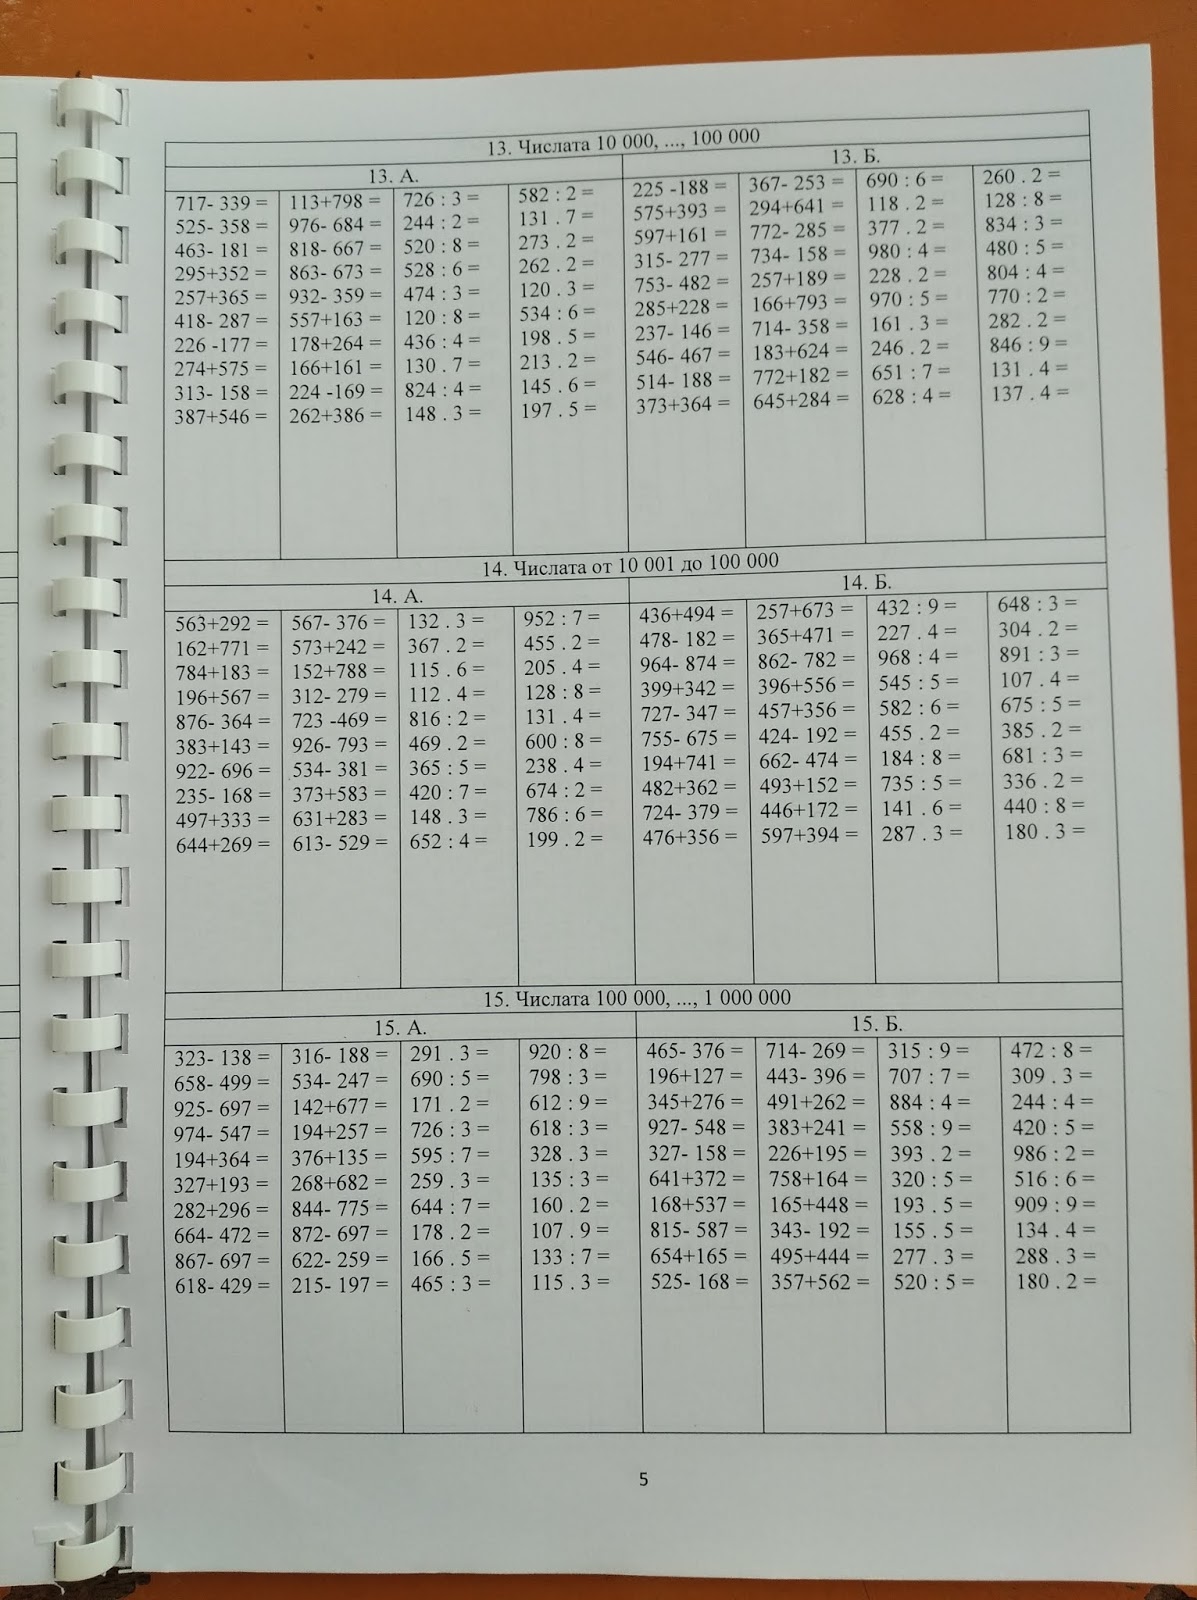 13. Числата 10 000, ..., 100 000
13. А.
13. Б.
717- 339 = 113+798 = 726 : 3 = 582 : 2 = 225 -188 = 367- 253 = 690 : 6 = 260 . 2 =
525- 358 = 976- 684 = 244 : 2 = 131 . 7 = 575+393 = 294+641 = 118 . 2 = 128 : 8 =
463- 181 = 818- 667 = 520 : 8 = 273 . 2 = 597+161 = 772- 285 = 377 . 2 = 834 : 3 =
295+352 = 863- 673 = 528 : 6 = 262 . 2 = 315- 277 = 734- 158 = 980 : 4 = 480 : 5 =
257+365 = 932- 359 = 474 : 3 = 120 . 3 = 753- 482 = 257+189 = 228 . 2 = 804 : 4 =
418- 287 = 557+163 = 120 : 8 = 534 : 6 = 285+228 = 166+793 = 970 : 5 = 770 : 2 =
226 -177 = 178+264 = 436 : 4 = 198 . 5 = 237- 146 = 714- 358 = 161 . 3 = 282 . 2 =
274+575 = 166+161 = 130 . 7 = 213 . 2 = 546- 467 = 183+624 = 246 . 2 = 846 : 9 =
313- 158 = 224 -169 = 824 : 4 = 145 . 6 = 514- 188 = 772+182 = 651 : 7 = 131 . 4 =
387+546 = 262+386 = 148 . 3 = 197 . 5 = 373+364 = 645+284 = 628 : 4 = 137 . 4 =
14. Числата от 10 001 до 100 000
14. А.
14. Б.
563+292 = 567- 376 = 132 . 3 = 952 : 7 = 436+494 = 257+673 = 432 : 9 = 648 : 3 =
162+771 = 573+242 = 367 . 2 = 455 . 2 = 478- 182 = 365+471 = 227 . 4 = 304 . 2 =
784+183 = 152+788 = 115 . 6 = 205 . 4 = 964- 874 = 862- 782 = 968 : 4 = 891 : 3 =
196+567 = 312- 279 = 112 . 4 = 128 : 8 = 399+342 = 396+556 = 545 : 5 = 107 . 4 =
876- 364 = 723 -469 = 816 : 2 = 131 . 4 = 727- 347 = 457+356 = 582 : 6 = 675 : 5 =
383+143 = 926- 793 = 469 . 2 = 600 : 8 = 755- 675 = 424- 192 = 455 . 2 = 385 . 2 =
922- 696 = 534- 381 = 365 : 5 = 238 . 4 = 194+741 = 662- 474 = 184 : 8 = 681 : 3 =
235- 168 = 373+583 = 420 : 7 = 674 : 2 = 482+362 = 493+152 = 735 : 5 = 336 . 2 =
497+333 = 631+283 = 148 . 3 = 786 : 6 = 724- 379 = 446+172 = 141 . 6 = 440 : 8 =
644+269 = 613- 529 = 652 : 4 = 199 . 2 = 476+356 = 597+394 = 287 . 3 = 180 . 3 =
15. Числата 100 000, ..., 1 000 000
15. А.
15. Б.
323- 138 = 316- 188 = 291 . 3 = 920 : 8 = 465- 376 = 714- 269 = 315 : 9 = 472 : 8 =
658- 499 = 534- 247 = 690 : 5 = 798 : 3 = 196+127 = 443- 396 = 707 : 7 = 309 . 3 =
925- 697 = 142+677 = 171 . 2 = 612 : 9 = 345+276 = 491+262 = 884 : 4 = 244 : 4 =
974- 547 = 194+257 = 726 : 3 = 618 : 3 = 927- 548 = 383+241 = 558 : 9 = 420 : 5 =
194+364 = 376+135 = 595 : 7 = 328 . 3 = 327- 158 = 226+195 = 393 . 2 = 986 : 2 =
327+193 = 268+682 = 259 . 3 = 135 : 3 = 641+372 = 758+164 = 320 : 5 = 516 : 6 =
282+296 = 844- 775 = 644 : 7 = 160 . 2 = 168+537 = 165+448 = 193 . 5 = 909 : 9 =
664- 472 = 872- 697 = 178 . 2 = 107 . 9 = 815- 587 = 343- 192 = 155 . 5 = 134 . 4 =
867- 697 = 622- 259 = 166 . 5 = 133 : 7 = 654+165 = 495+444 = 277 . 3 = 288 . 3 =
618- 429 = 215- 197 = 465 : 3 = 115 . 3 = 525- 168 = 357+562 = 520 : 5 = 180 . 2 =
5